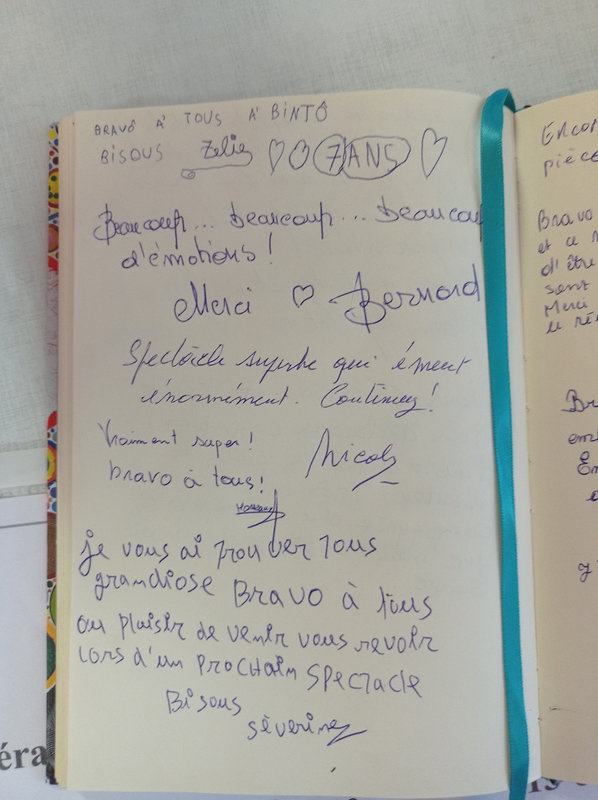 BRAVÔ À TOUS À BINTÔ
BISOUS Zélie 7 ANS
Beaucoup... beaucoup... beaucoup
d'émotions !
Merci Bernard
Spectacle superbe qui émeut
énormément. Continuez !
Vraiment super !
bravo à tous !
Nicolas
je vous ai trouver tous
grandiose Bravo à tous
au plaisir de venir vous revoir
lors d'un prochain spectacle
Bisous
séverine
Encor
pièce
Bravo
et ce
d'être
sont
Merci
Br
éra